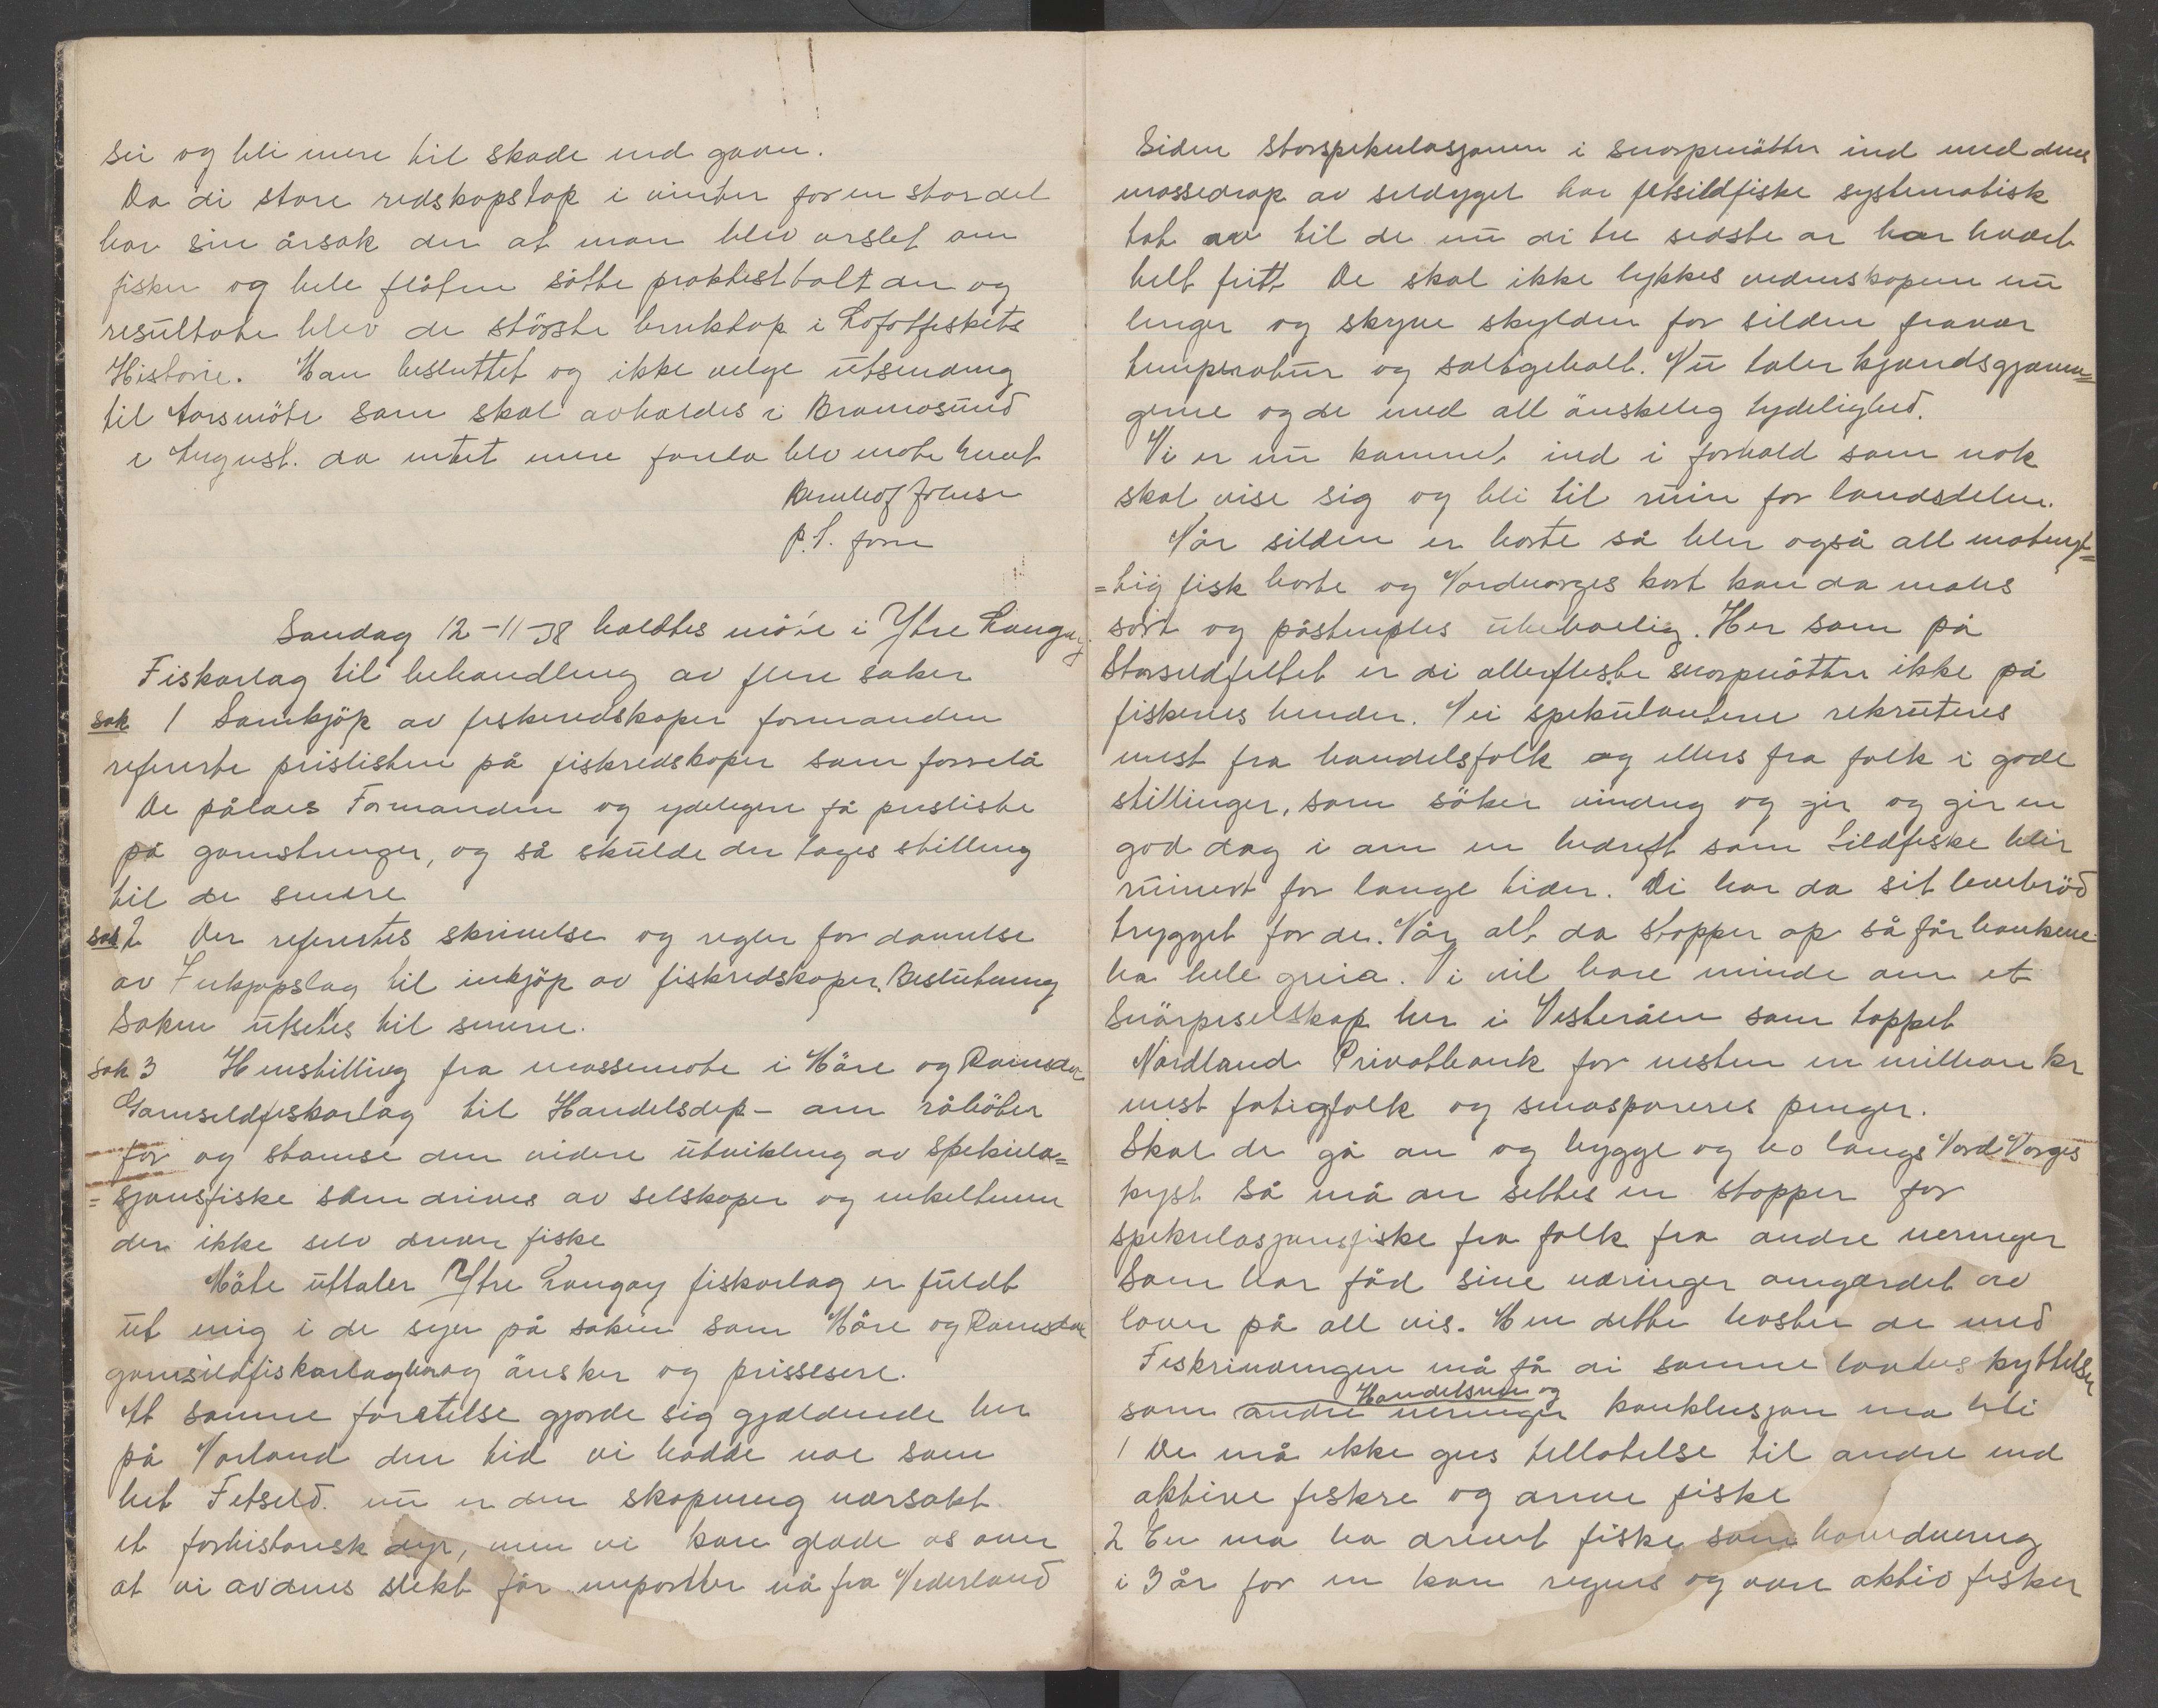 sei og bli mere til skade end gavn.
Da di store redskapstap i vinter for en stor del
har sin årsak der at man blev varslet om
fisken og hele flåten såtte praktest talt der og
resultate blev de største bruktap i Lofotfeskets
Historie. Man besluttet og ikke velge utsending
til Aarsmöte som skal avholdes i
i August. da intet mere forelo blev mote hevet
P.S. 
Søndag 12-11-38 holdtes möte i Ytre Langøy
Fiskarlag til behandling av flere saker
sak 1 Samkjöp av feskeredskaper formanden
refererte prislisten på fiskredskaper som forrelå
De pålaes Formanden og ydeligere få prisliste
på garnslenger, og så skulde der tages stilling
til de senere
sak 2 Der refertes skrivelse og regler for dannelse
av Inkjøpslag til inkjöp av fiskredskaper. Beslutning
Saken utsetes til senere.
Sak 3 Henstilling fra massemote i Möre og Romsdal
Garnseldfeskarlag til Handelsdep- om råböter
for og stanse den videre utvikling av Spekula=
=sjonsfiske som drives av selskaper og enkeltmen
der ikke selv driver fiske
Möte uttaler Ytre Langøy fiskarlag er fuldt
ut enig i de syn på saken som Möre og Romsdal
garnsildfiskarlag har og änsker og prissesere.
At samme foretelse gjorde sig gjældende her
på Norland den tid vi hadde noe som
het Fetseld. nu er den skapning nærsakt
et forhistorisk dyr, men vi kan glede os over
at vi av dens slekt får importer nå fra Nederland
Siden storspekulasjonen i snorpenötter ind med dens
massedrap av sildyngel har fetsildfiske systematisk
tat av til de nu di tre sidste ar har hvært
helt fritt De skal ikke lykkes vedenskapen nu
lenger og skyve skylden for silden fravær
temperatur og saltgehalt. Nu taler kjendsgjærnin=
gerne og de med all önskelig tydelighed.
Vi er nu kommet ind i forhold som nok
skal vise sig og bli til ruin for landsdelen.
Når silden er borte så blir også all matnyt=
=tig fisk borte og Nordnorges kort kan da males
sort og påstemples ubeboelig. Her som på
Storseldfeltet er di allerfleste snorpnötter ikke på
fiskernes hender. Nei spekulantene rekruteres
mest fra handelsfolk og ellers fra folk i gode
stillinger, som söker vinding og gir og gir en
god dag i om en bedreft som Sildfiske blir
ruinert for lange tider. Di har da sit levebröd
trygget for de. Når alt da stopper op så får bankene
ha hele greia. Vi vil bare minde om et
Snörpeselskap her i Vesterålen som tappet
Nordland Privatbank for nesten en million kr
mest fatigfolk og smaspareres penger.
Skal de gå an og bygge og bo langs Nord Norges
kyst så må der settes en stopper for
spekulasjonsfiske fra folk fra andre neringer
Som har fåd sine næringer omgærdet av
lover på all vis. Men dette haster de med
Feskrinæringen må få di samme lovens byttelse
Handelsnen og
som andre neringer konklusjon ma bli
1 De må ikke gies tillatelse til andre end
aktive feskere og drive fiske
2 En ma ha drevet fiske som hovednering
i 3 år for en kan regnes og være aktiv fesker